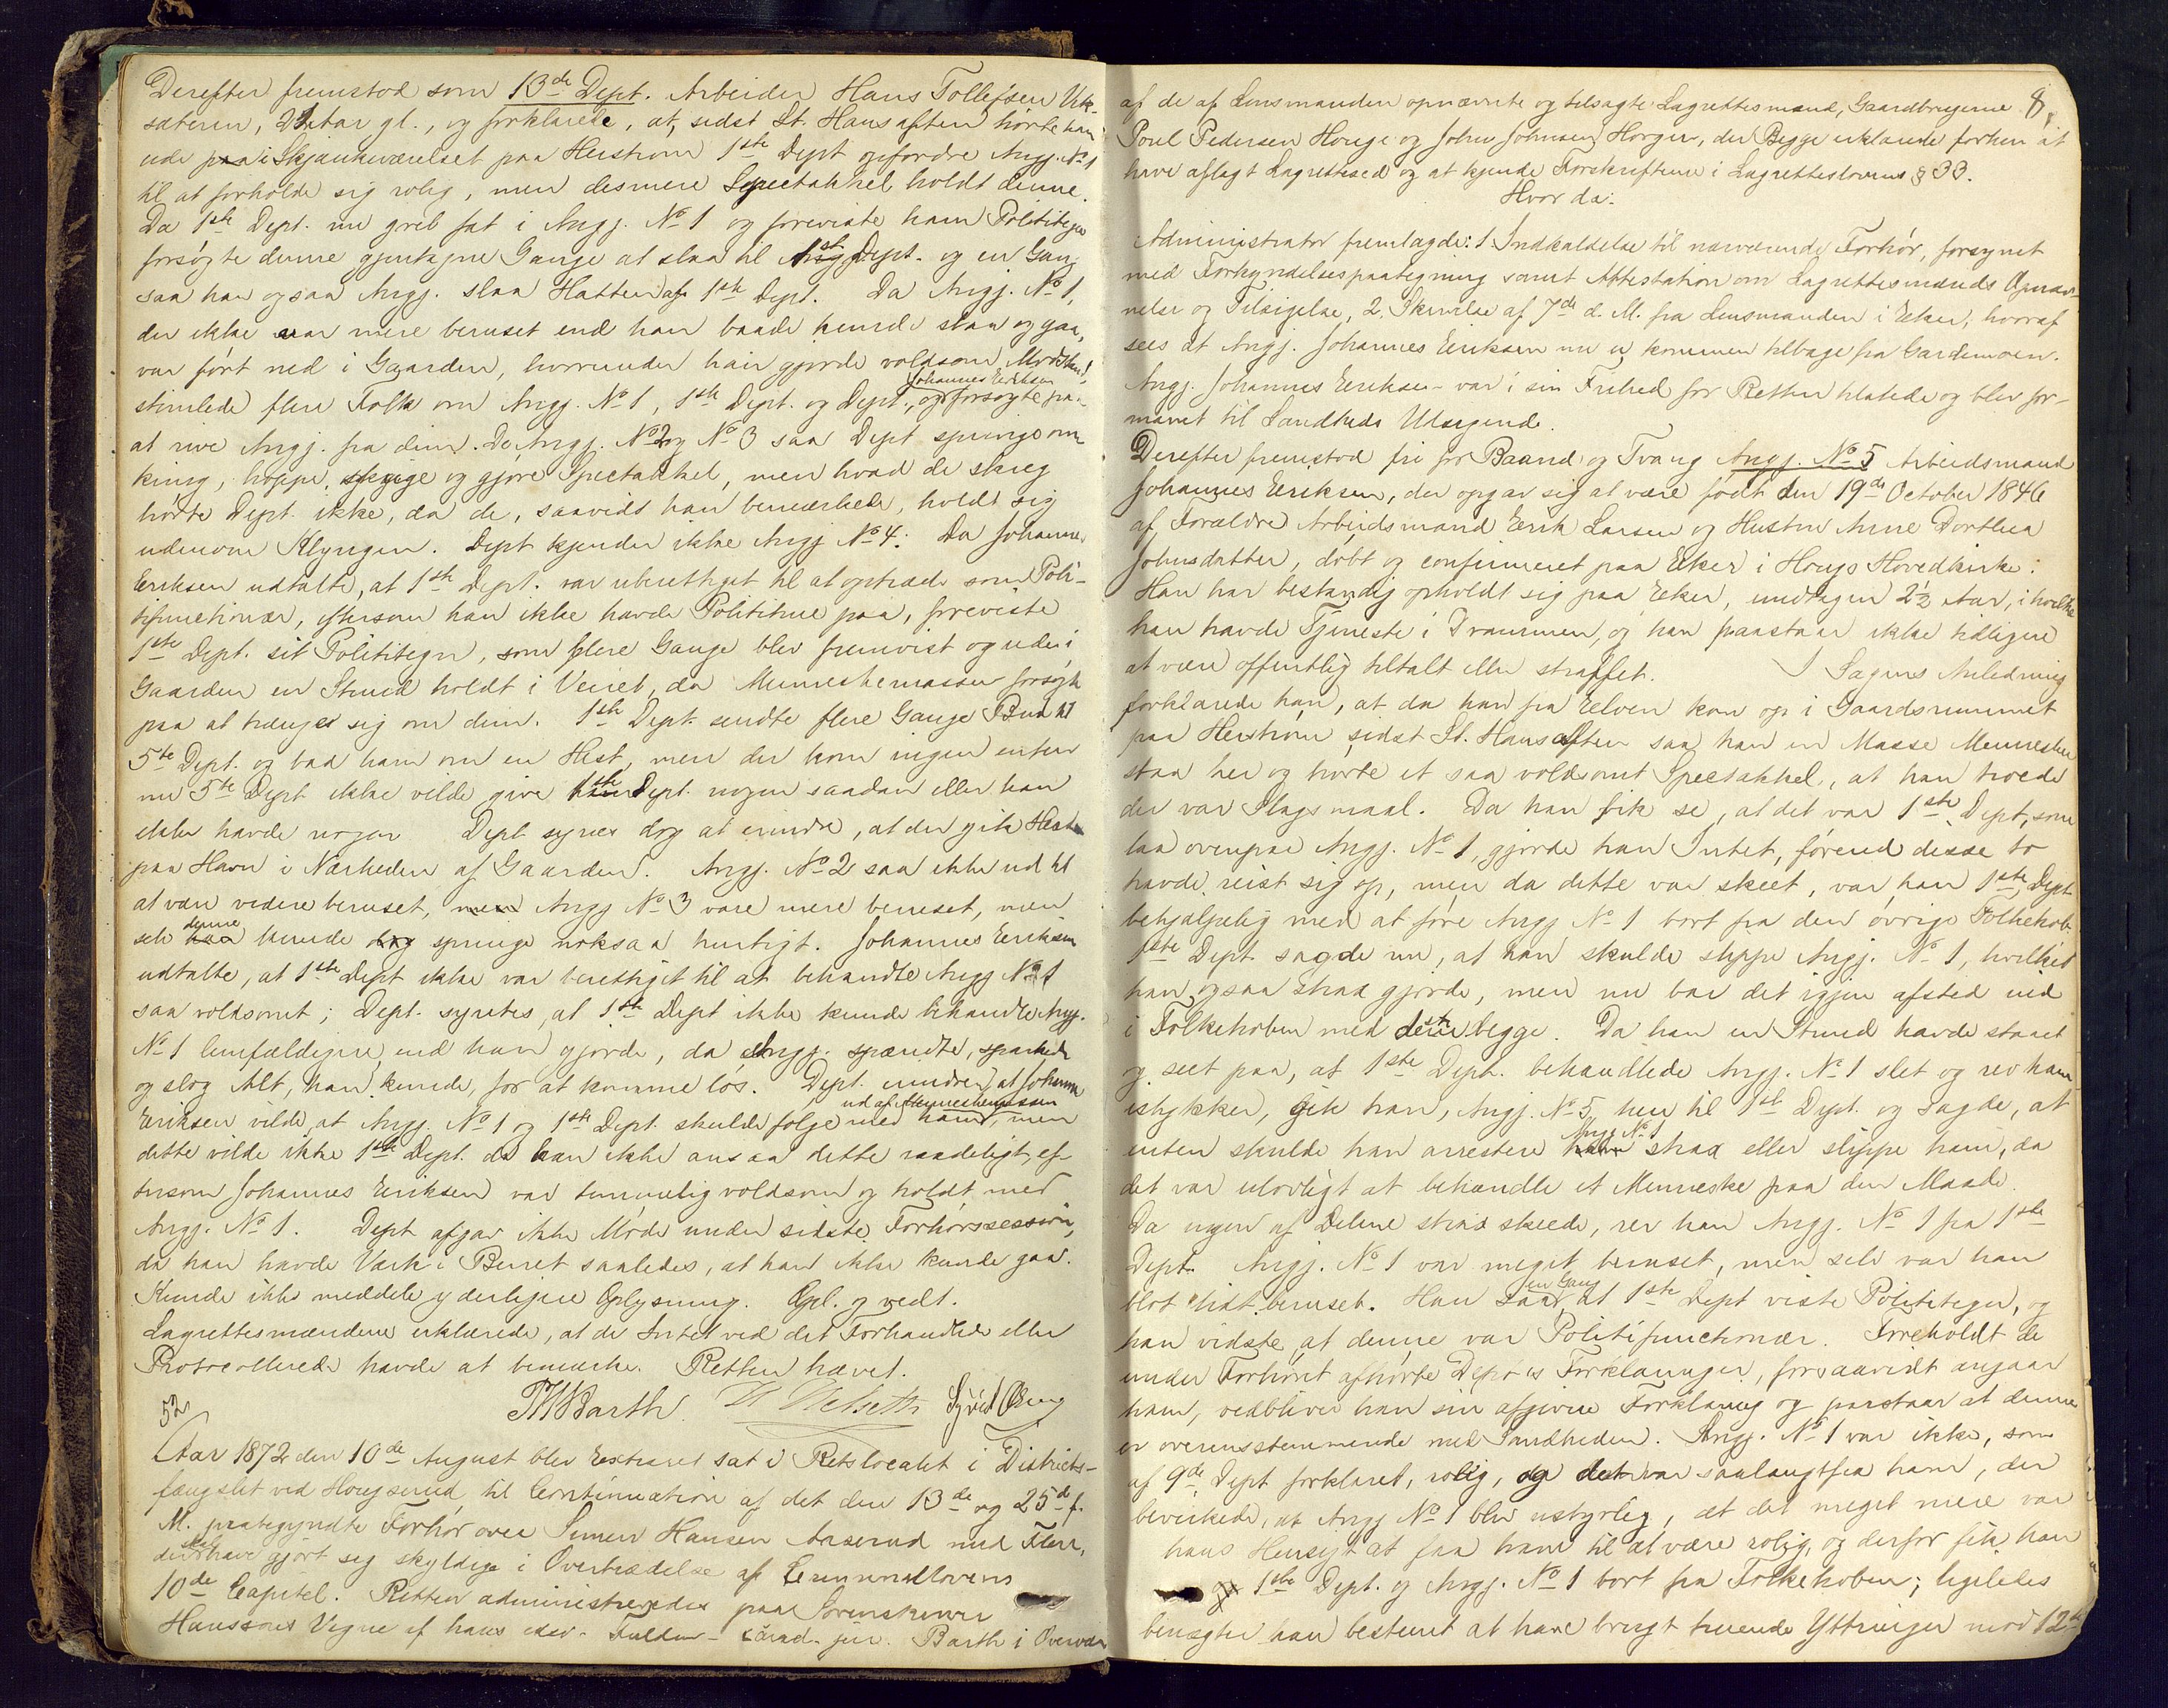 Derefter fremstod som 13de Dept. Arbeider Hans Tollefsen Uk-
sateren, 22 Aar gl., og forklarede, at, sidst St. Hansaften hørte han
ude paa i Skjænkeværelset paa Herstrøm 1ste Dept opfordre Angj. No 1
til at forholde sig rolig, men desmere Spectakkel holdt denne.
Da 1ste Dept. nu greb fat i Angj. No 1 og foreviste ham Polititegn
forsøgte denne gjentagne Gange at slaa til 1ste Dept. og en Gang
saa han ogsaa Angj. slaa Hatten af 1ste Dept. Da Angj. No 1,
der ikke var mere beruset end han baade kunde staa og gaa,
var ført ned i Gaarden, hvorunder han gjorde voldsom Modstand,
stimlede flere Folk om Angj. No 1, 1ste Dept. og Dept., og Johannes Eriksen forsøgte paa
at rive Angj. fra dem. De Angj. No 2 og No 3 saa Dept springe om-
kring, hoppe, skrige og gjøre Spectakkel, men hvad de skreg
hørte Dept. ikke, da de, saavidt han bemærkede, holdt sig
udenom Klyngen. Dept kjender ikke Angj No 4. Da Johannes
Eriksen udtalte, at 1ste Dept. var uberettiget til at optræde som Poli-
tifunctionær, eftersom han ikke havde Politihue paa, foreviste
1ste Dept. sit Polititegn, som flere Gange blev fremvist og ude i
Gaarden en Stund holdt i Veiret, da Menneskemassen forsøgte
paa at trænge sig om dem. 1ste Dept. sendte flere Gange Bud til
5te Dept. og bad ham om en Hest, men der kom ingen enten
nu 5te Dept ikke vilde give 1ste Dept. nogen saadan eller han
ikke havde nogen Dept synes dog at erindre, at der gik Heste
paa Havn i Nærheden af Gaarden. Angj. No 2 saa ikke ud til
at være videre beruset, men Angj No 3 vare mere beruset, men
selv denne kunde dog springe noksaa hurtigt. Johannes Eriksen
udtalte, at 1ste Dept ikke var berettiget til at behandle Angj No 1
saa voldsomt; Dept. syntes, at 1ste Dept ikke kunde behandle Angj.
No 1 lemfældigere, end han gjorde, da Angj. spændte, sparkede
og slog Alt, han kunde, for at komme løs. Dept. erindrer, at Johannes
Eriksen vilde, at Angj. No 1 og 1ste Dept. skulde følge med ham ud af Menneskemassen, men
dette vilde ikke 1ste Dept. da han ikke ansaa dette raadeligt, ef-
tersom Johannes Eriksen var temmelig voldsom og holdt med
Angj. No 1. Dept. afgav ikke Møde under sidste Forhørssession,
da han havde Værk i Benet saaledes, at han ikke kunde gaa.
Kunde ikke meddele yderligere Oplysning. Opl. og vedt.
Lagrettesmændene erklærede, at de Intet ved det Forhandlede eller
Protocollerede havde at bemærke. Retten hævet.
THBarth.
52
Aar 1872 den 10de August blev Extraret sat i Retslocalet i Districts-
fængslet ved Hougsund til Continuation af det den 13de og 25de f.
M. paabegyndte Forhør over Simen Hansen Aaserud med Flere,
der skal have gjort sig skyldige i Overtrædelse af Criminallovens
10de Capitel. Retten administreredes paa Sorenskriver
Hanssons Vegne af hans edsv. Fuldm. cand. jur. Barth i Overvær
8.
af de af Lensmanden opnævnte og tilsagte Lagrettesmænd, Gaardbrugerne
Poul Pedersen Houge og John Johnsen Horgen, der Begge erklærede forhen at
have aflagt Lagrettesed og at kjende Forskrifterne i Lagretteslovens § 33.
Hvor da:
Administrator fremlagde: 1 Indkaldelse til nærværende Forhør, forsynet
med Forkyndelsespaategning samt Attestation om Lagrettesmænds Opnæv-
nelse og Tilsigelse, 2. Skrivelse af 7de d. M. fra Lensmanden i Eker, hvoraf
sees at Angj. Johannes Eriksen nu er kommen tilbage fra Gardemoen.
Angj. Johannes Eriksen var i sin Frihed for Retten tilstede og blev for-
manet til Sandheds Udsigende.
Derefter fremstod fri for Baand og Tvang Angj. No 5 Arbeidsmand
Johannes Eriksen, der opgav sig at være født den 19de October 1846
af Forældre Arbeidsmand Erik Larsen og Hustru Anne Dorthea
Johnsdatter, døbt og confirmeret paa Eker i Hougs Hovedkirke.
Han har bestandig opholdt sig paa Eker, undtagen 2½ Aar, i hvilke
han havde Tjeneste i Drammen, og han paastaar ikke tidligere
at være offentlig tiltalt eller straffet. I Sagens Anledning
forklarede han, at da han fra Elven kom op i Gaardsrummet
paa Herstrøm sidst St. Hansaften saa han en Masse Mennesker
staa her og hørte et saa voldsomt Spectakkel, at han troede
der var Slagsmaal. Da han fik se, at det var 1ste Dept, som
laa ovenpaa Angj. No 1, gjorde han Intet, førend disse to
havde reist sig op, men da dette var skeet, var han 1ste Dept
behjælpelig med at føre Angj No 1 bort fra den øvrige Folkehob.
1ste Dept. sagde nu, at han skulde slippe Angj. No 1, hvilket
han ogsaa strax gjorde, men nu bar det igjen afsted ind
i Folkehoben med dem begge. Da han en Stund havde staaet
og seet paa, at 1ste Dept. behandlede Angj. No 1 slet og rev ham
istykker, gik han, Angj. No 5, hen til 1ste Dept. og sagde, at
enten skulde han arrestere Angj No 1 strax eller slippe ham, da
det var ulovligt at behandle et Menneske paa den Maade.
Da ingen af Delene strax skeede, rev han Angj. No 1 fra 1ste
Dept. Angj. No 1 var meget beruset, men selv var han
blot lidt beruset. Han saa en Gang at 1ste Dept viste Polititegn, og
han vidste, at denne var Politifunctionær. Foreholdt de
under Forhøret afhørte Depts Forklaringer, forsaavidt angaar
ham, vedbliver han sin afgivne Forklaring og paastaar at denne
er overensstemmende med Sandheden. Angj. No 1 var ikke, som
af 9de Dept forklaret, rolig, og det var saalangtfra ham, der
bevirkede, at Angj No 1 blev ustyrlig, at det meget mere var
hans Hensigt at faa ham til at være rolig, og derfor fik han
1ste Dept. og Angj. No 1 bort fra Folkehoben; ligeledes
benægter han bestemt at have brugt truende Yttringer mod 12te